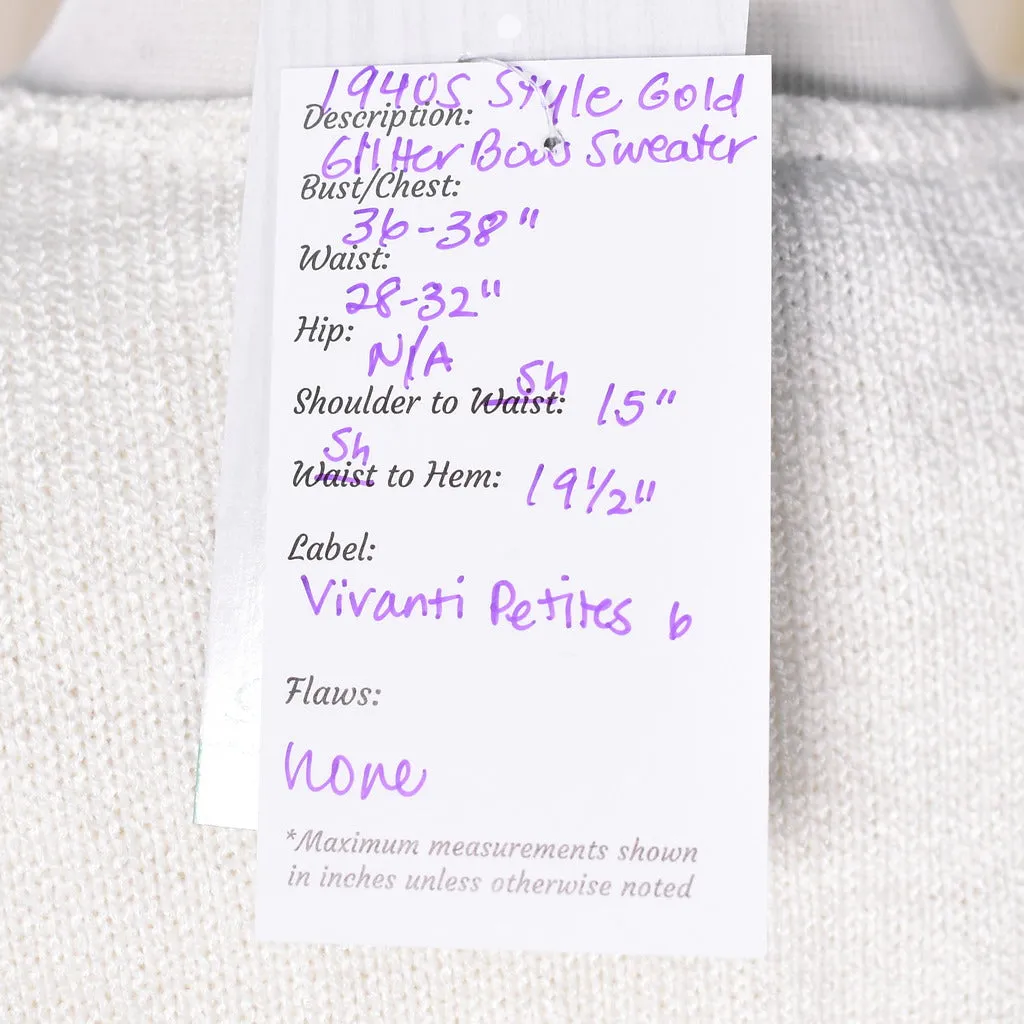 1940s Style Gold
Description:
Glitter Bow Sweater
Bust/Chest:
36-38"
Waist:
28-32"
Hip:
N/A
Sh
Shoulder to Waist: 15"
Sh
Waist to Hem: 19 1/2"
Label:
Vivanti Petites 6
Flaws:
None
*Maximum measurements shown
in inches unless otherwise noted